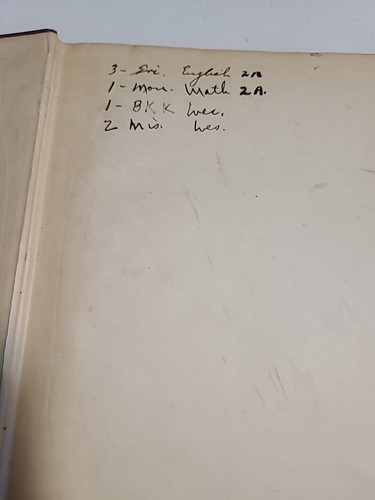 3 - Fri. English 2A
1 - Mon. Math 2A.
1 - B.K.K Wes.
2 Mis. Wes.